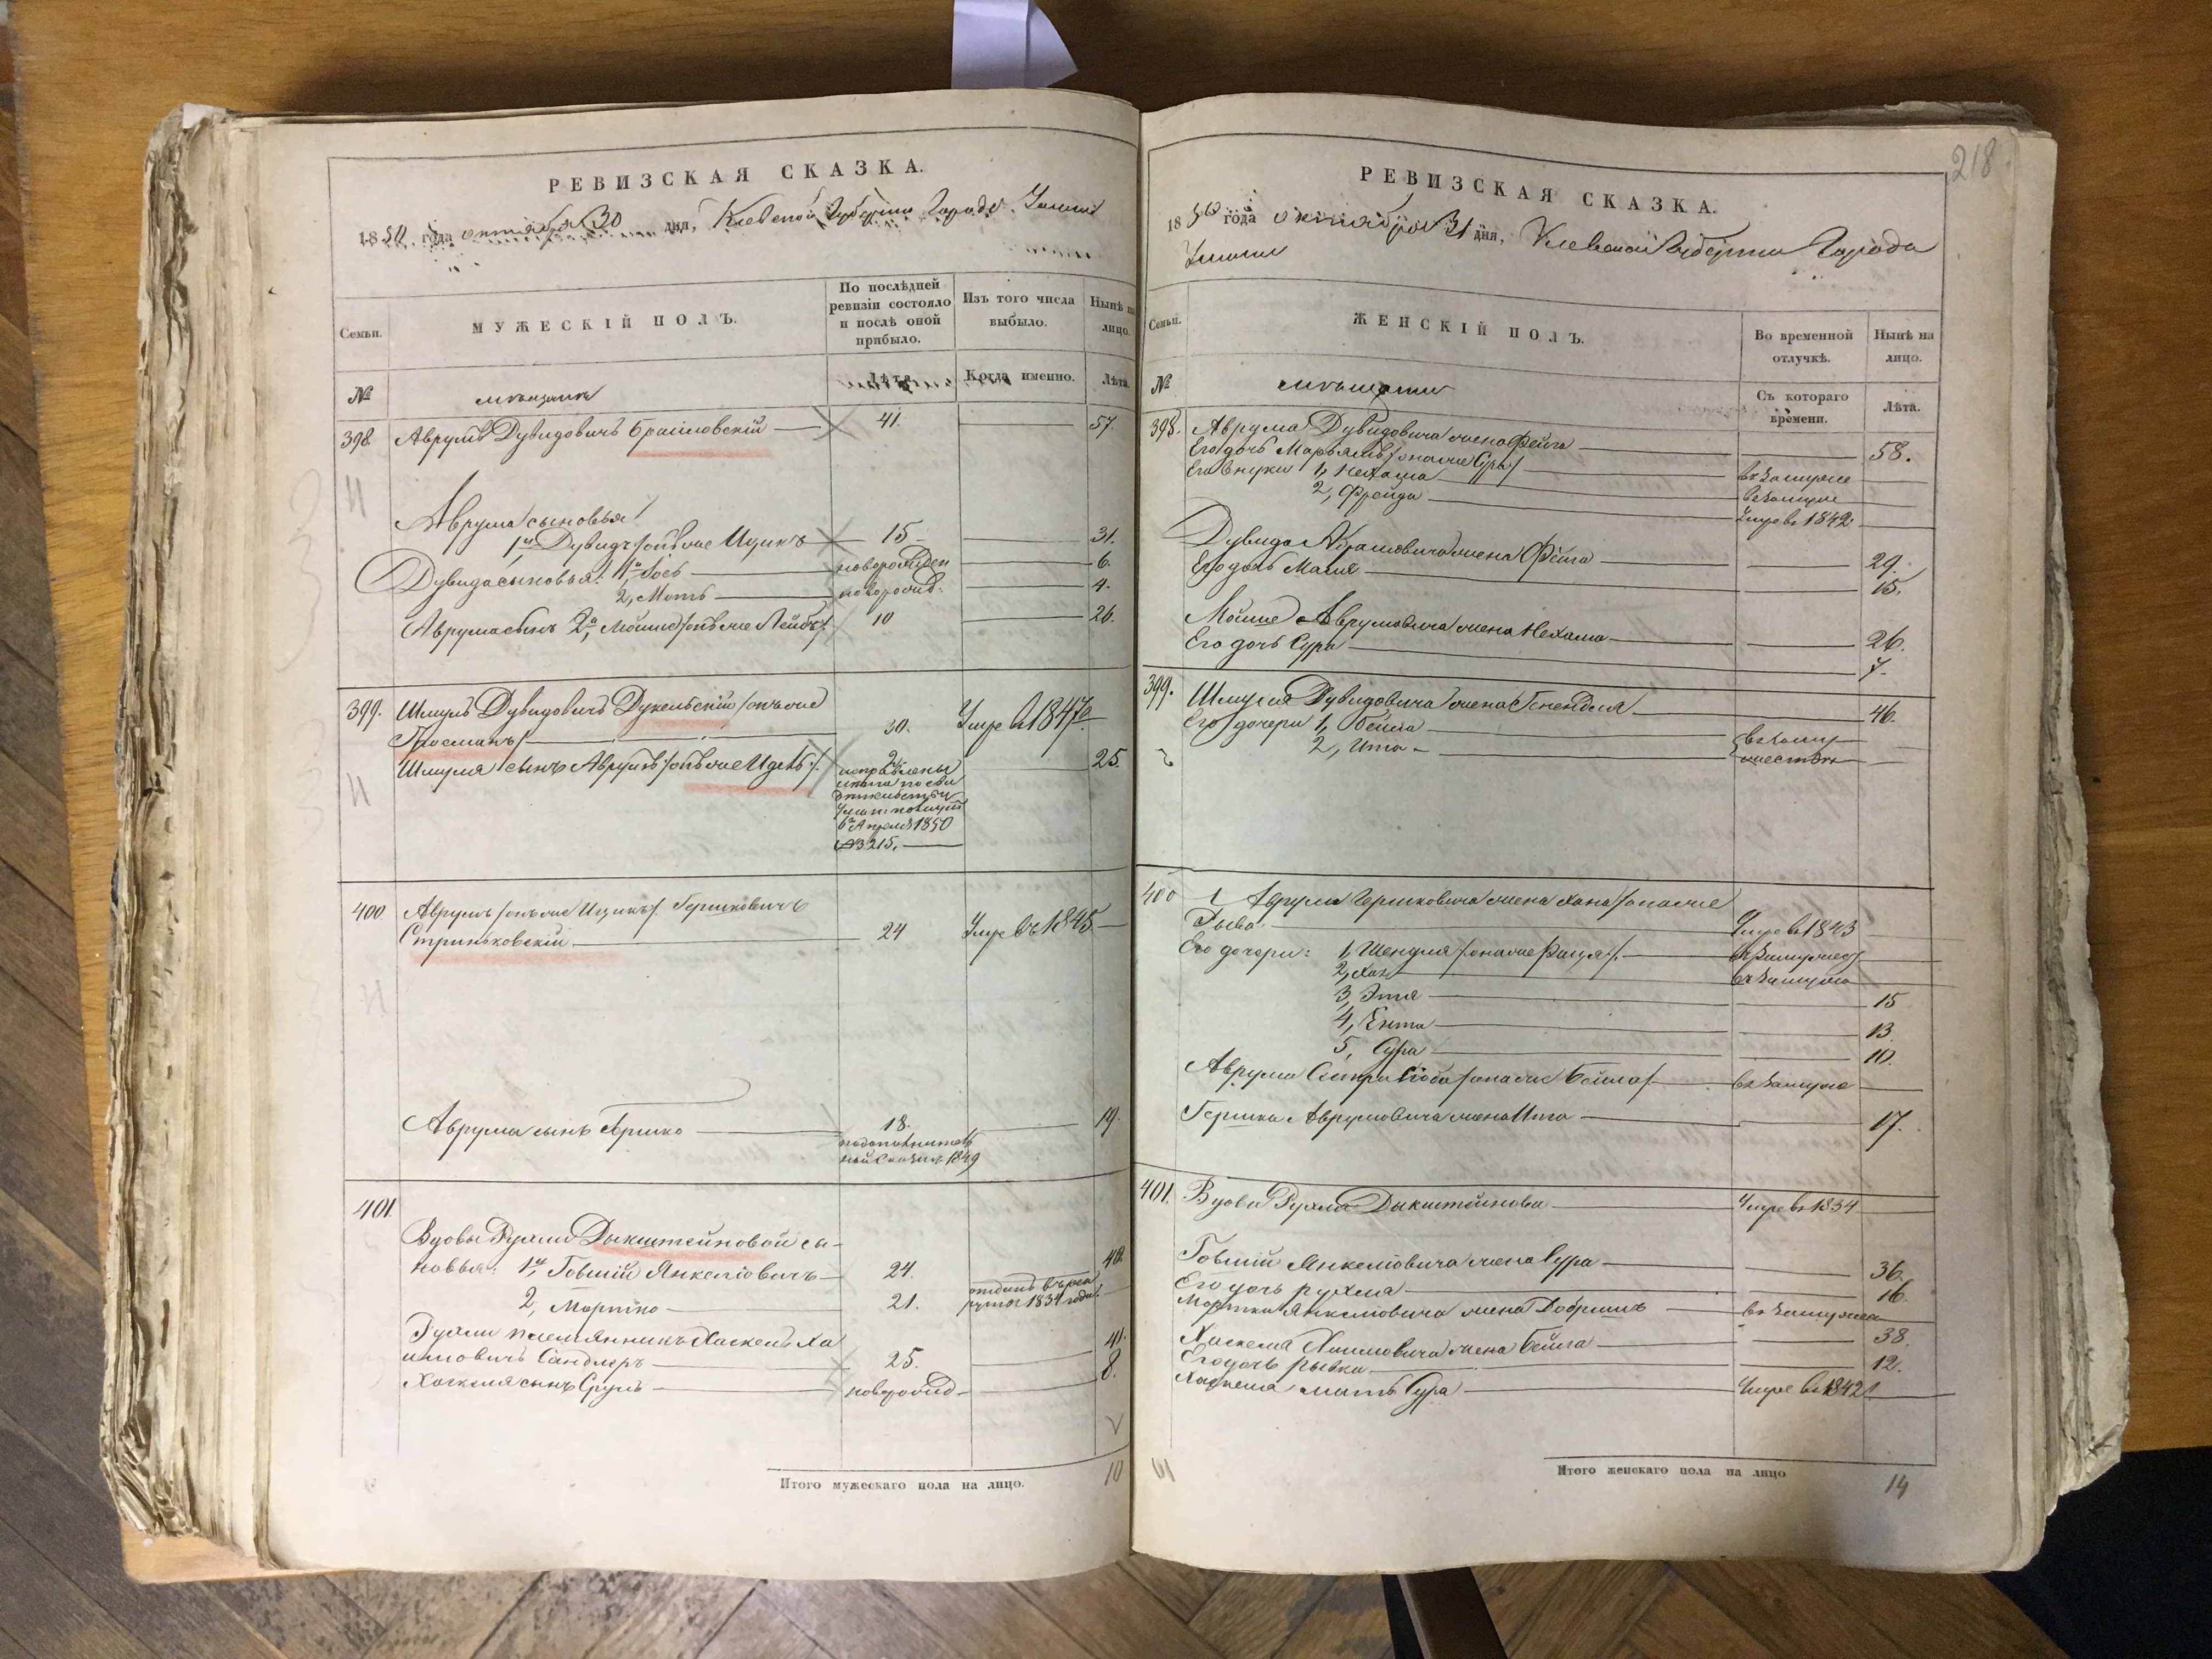 РЕВИЗСКАЯ СКАЗКА.
1850 года октября 30 дня, Киевской Губернии Города Умани
Семьи.
МУЖЕСКІЙ ПОЛЪ.
По послѣдней ревизіи состояло и послѣ оной прибыло.
Изъ того числа выбыло.
Нынѣ на лицо.
№
мѣщане
Лѣта.
Когда именно.
Лѣта.
398. Аврумъ Дувидовичъ Браиловскій 41. 57.
Аврума сыновья
1й Дувидъ /онъ же Ицикъ 15 31.
Дувида сыновья: 1, Іось новорожден 6.
2, Мотъ новорожд. 4.
Аврума сынъ 2й Мошко /онъ же Лейбъ/ 10 26.
399. Шмуль Дувидовичъ Дукельскій /онъ же
Гросманъ/ 30. Умре в 1847
Шмуля сынъ Аврумъ /онъ же Идель/ 25.
6 Апреля 1850
№ 3215.
400 Аврумъ /онъ же Ицикъ/ Гершковичъ
Стриньковскій 24 Умре въ 1845
Аврума сынъ Гершко 18. 19.
по дополнитель
ной сказке 1849
401.
Вдовы Рухли Дыкштейновой сы-
новья: 1й, Говшій Янкелiовичъ 24. 40.
2, Мортко 21. отданъ въ рек
руты 1834 года
Рухли племянникъ Хаскель Ха
имовичъ Сандлеръ 25. 41.
Хаскеля сынъ Срулъ новорожд 8.
Итого мужескаго пола на лицо. 10
218
РЕВИЗСКАЯ СКАЗКА.
1850 года октября 31 дня, Киевской Губернии Города
Умани
Семьи.
ЖЕНСКІЙ ПОЛЪ.
Во временной отлучкѣ.
Нынѣ на лицо.
№
мѣщане
Съ котораго времени.
Лѣта.
398. Аврума Дувидовича жена Фейга 58.
Его дочь Марьямъ /она же Сура/ въ замуже
Его внуки 1, Нехама в замуже
2, Фрейда Умре въ 1842
Дувида Абрамовича жена Фейга 29.
Его дочь Малия 15.
Мошка Аврумовича жена Нехама 26.
Его дочь Сура 7.
399. Шмуля Дувидовича жена Гнендля 46.
Его дочери 1, Бейла в заму
2, Ита жестве
400 Аврума Гершковича жена Хана /она же
Рыва Умре в 1843
Его дочери: 1, Шендля /она же Рация/ въ замужес
2, Хая въ замуже
3, Этя 15
4, Ента 13.
5, Сура 10.
Аврума Сестра Хова /она же Бейла/ въ замуже
Гершка Аврумовича жена Ита 17.
401. Вдова Рухля Дыкштейнова Умре въ 1834
Говшій Янкелiовича жена Сура 36.
Его дочь Рухля 16.
Мортка Янкелiовича жена Добришъ въ замужес
Хаскеля Хаимовича жена Бейла 38.
Его дочь Рывка 12.
Хаскеля мать Сура Умре въ 1842
Итого женскаго пола на лицо 14